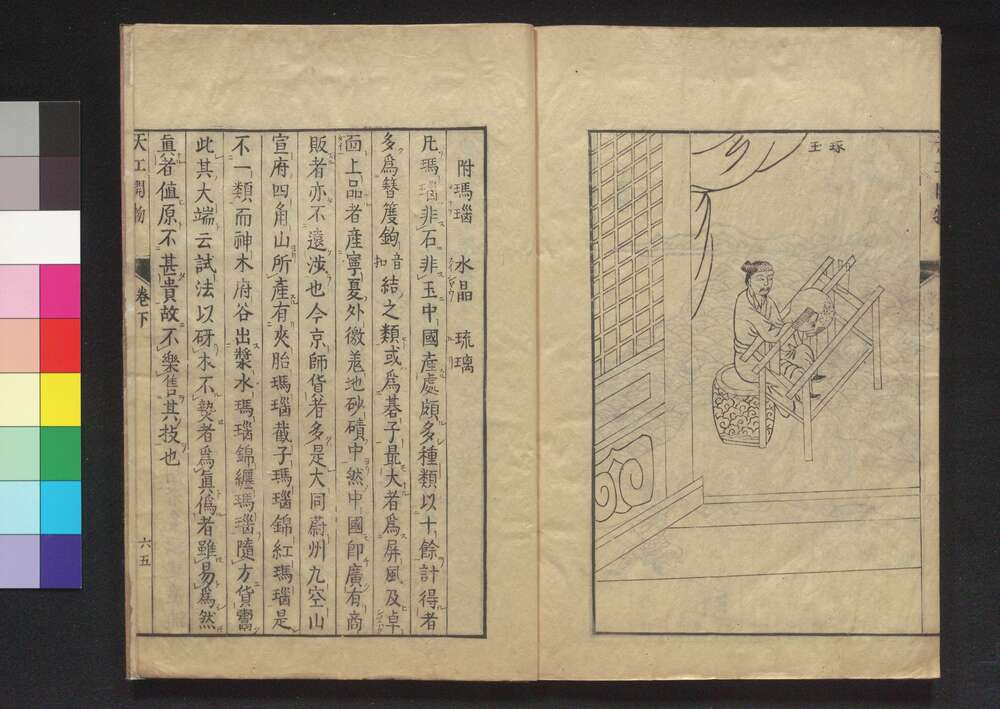 琢玉
附瑪瑙 水晶 琉璃
凡瑪瑙非石非玉中國產處頗多種類以十餘計得者
多爲簪䈄鉤音扣結之類或爲碁子最大者爲屏風及卓
面上品者產寧夏外徼羗地砂磧中然中國卽廣有商
販者亦不遠涉也今京師貨者多是大同蔚州九空山
宣府四角山所產有夾胎瑪瑙截子瑪瑙錦紅瑪瑙是
不一類而神木府谷出漿水瑪瑙錦纏瑪瑙隨方貨鬻
此其大端云試法以砑木不𤍠者爲眞僞者雖易爲然
眞者值原不甚貴故不樂售其技也
天工開物 卷下 六五